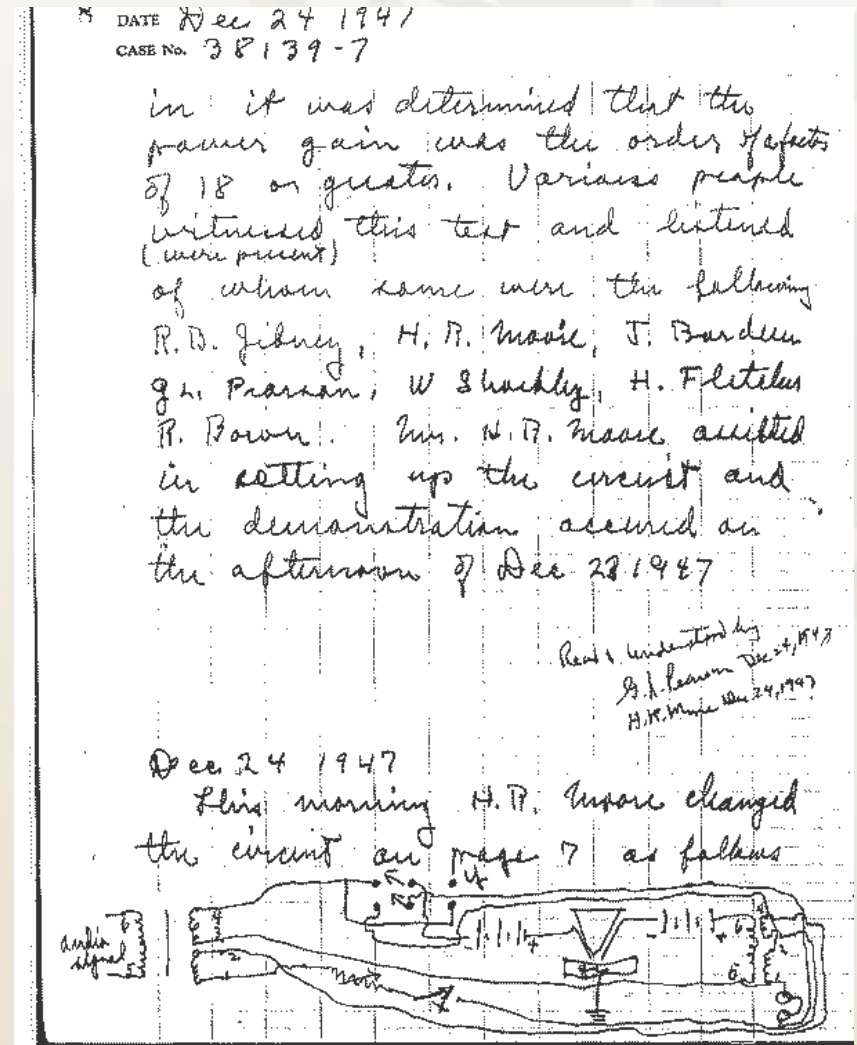 DATE Dec 24 1947
CASE No. 38139-7
in it was determined that the
power gain was the order of a factor
of 18 or greater. Various people
witnessed this test and listened
(were present)
of whom some were the following
R.B. Gibney, H. R. Moore, J. Bardeen
G.L. Pearson, W Shockley, H. Fletcher
R. Bown. Mr. H.R. Moore assisted
in setting up the circuit and
the demonstration occured on
the afternoon of Dec 23 1947
Read & understood by
G.L. Pearson Dec 24, 1947
H.R. Moore Dec 24, 1947
Dec 24 1947
This morning H.R. Moore changed
the circuit on page 7 as follows
audio
signal